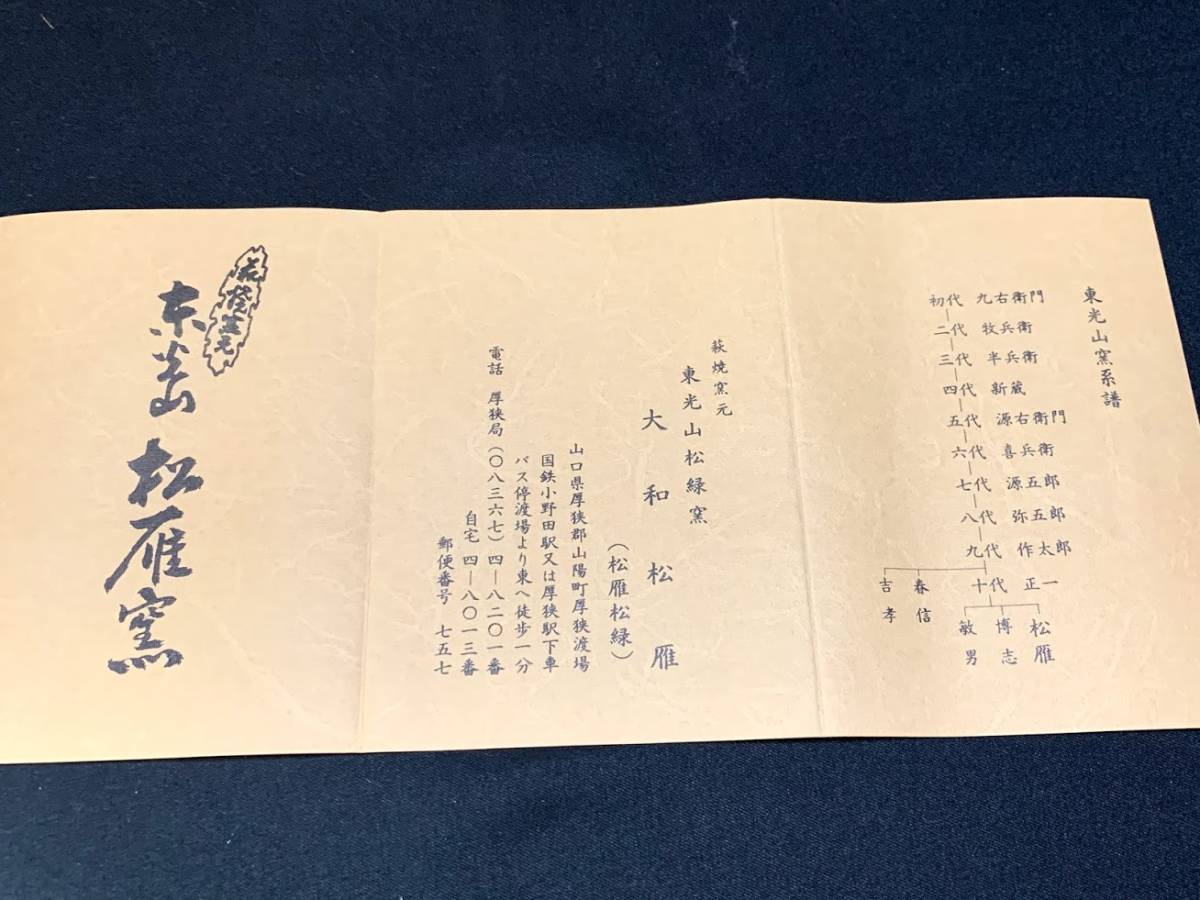 東光山窯系譜
初代 九右衛門
二代 牧兵衛
三代 半兵衛
四代 新蔵
五代 源右衛門
六代 喜兵衛
七代 源五郎
八代 弥五郎
九代 作太郎
十代 正一
春信
吉孝
松雁
博志
敏男
萩焼窯元
東光山松緑窯
大和松雁
(松雁松緑)
山口県厚狭郡山陽町厚狭渡場
国鉄小野田駅又は厚狭駅下車
バス停渡場より東へ徒歩一分
電話 厚狭局(〇八三六七)四―八二〇一番
自宅 四―八〇一三番
郵便番号 七五七
萩焼窯元
東光山
松雁窯